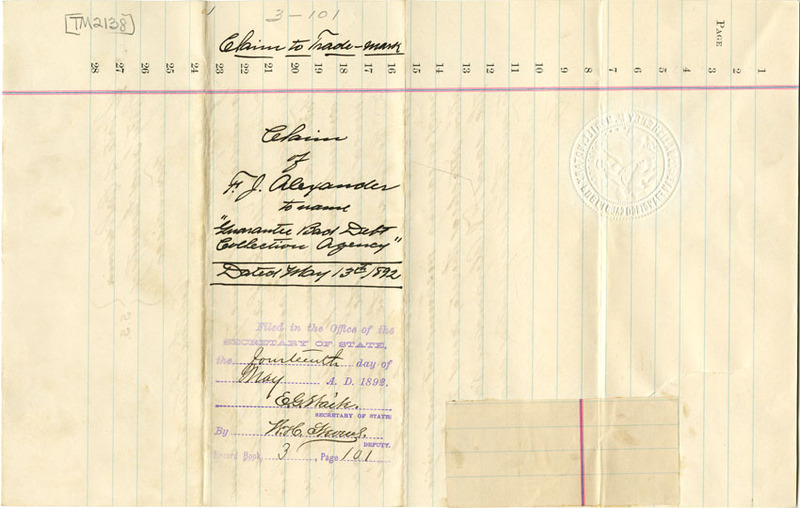 [TM2138]
3-101
Claim to Trade-mark
PAGE
28 27 26 25 24 23 22 21 20 19 18 17 16 15 14 13 12 11 10 9 8 7 6 5 4 3 2 1
Claim
of
F. J. Alexander
to name
"Guarantee Bad Debt
Collection Agency"
Dated May 13th 1892
Filed in the Office of the
SECRETARY OF STATE,
the fourteenth day of
May A. D. 1892.
E. G. Waite.
SECRETARY OF STATE
By W. H. 
DEPUTY.
Record Book, 3, Page 101